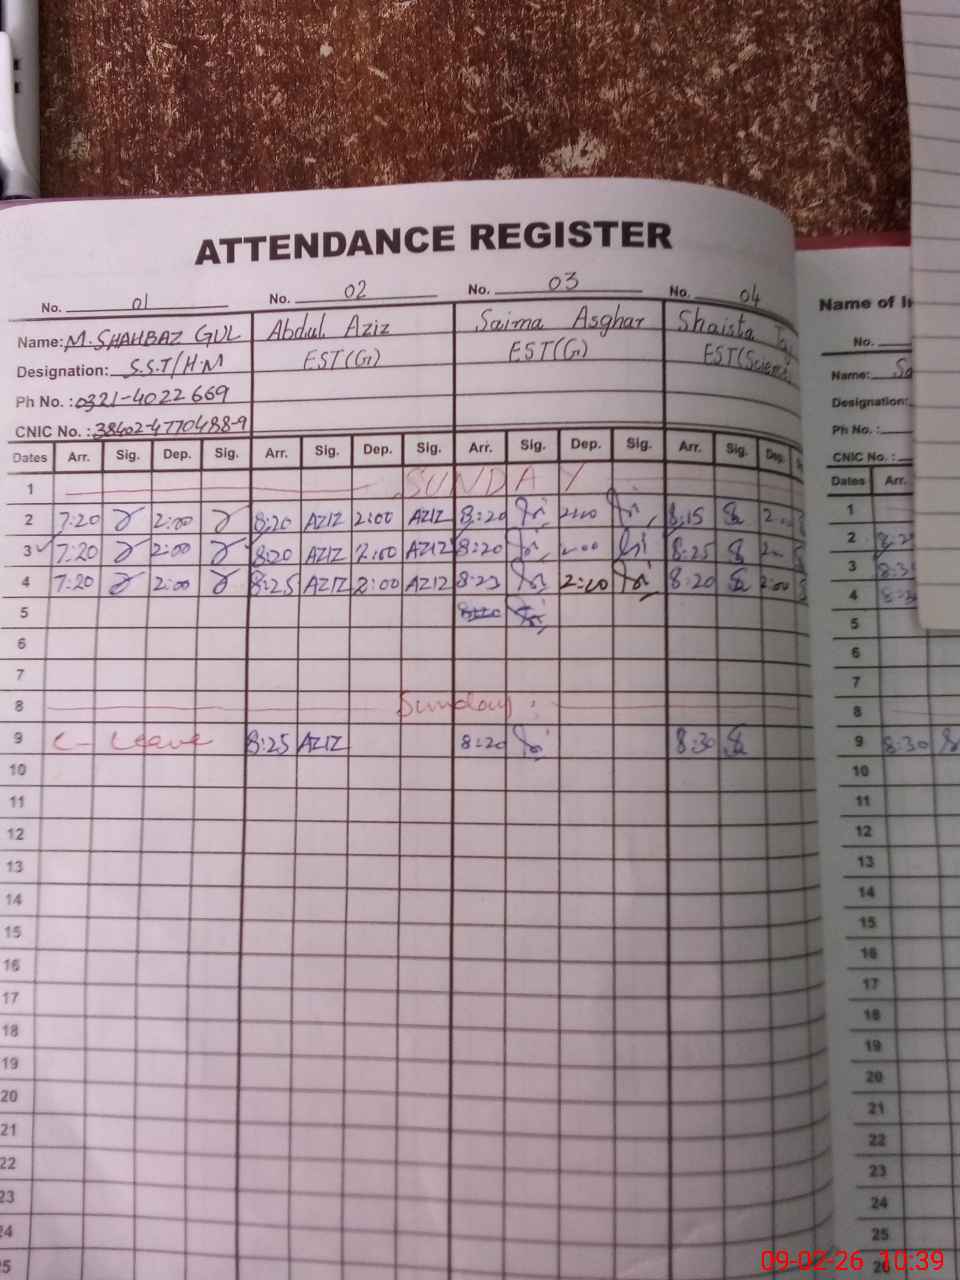 ATTENDANCE REGISTER
No. 01 No. 02 No. 03 No. 04
Name: M. SHAHBAZ GUL Abdul Aziz Saima Asghar Shaista
Designation: S.S.T/H.M EST(G) EST(G) EST(Science
Ph No. : 0321-4022669
CNIC No. : 38402-4770488-9
Dates Arr. Sig. Dep. Sig. Arr. Sig. Dep. Sig. Arr. Sig. Dep. Sig. Arr. Sig. Dep.
1 SUNDAY
2 7:20 2:00 8:20 AZIZ 2:00 AZIZ 8:20 2:00 8:15
3 7:20 2:00 8:20 AZIZ 2:00 AZIZ 8:20 2:00 8:25
4 7:20 2:00 8:25 AZIZ 2:00 AZIZ 8:23 2:00 8:20 2:00
5
6
7
8 Sunday
9 C- Leave 8:25 AZIZ 8:20 8:30
10
11
12
13
14
15
16
17
18
19
20
21
22
23
24
Name of
No.
Name:
Designation:
Ph No. :
CNIC No. :
Dates Arr.
1
2
3
4
5
6
7
8
9 8:30
10
11
12
13
14
15
16
17
18
19
20
21
22
23
24
25
26
09-02-26 10:39